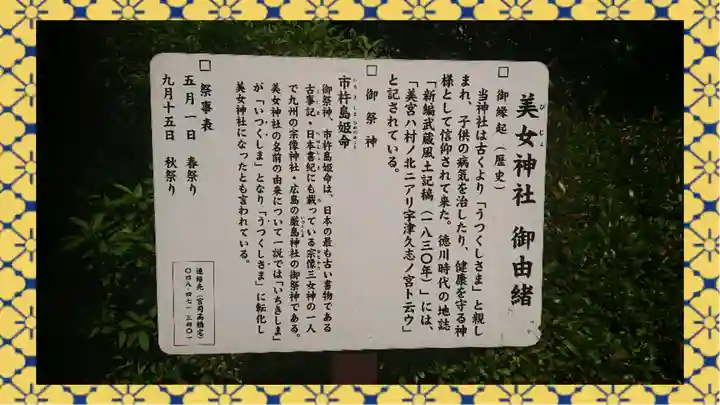 美女神社 御由緒
びじょ
□ 御縁起(歴史)
当神社は古くより「うつくしさま」と親し
まれ、子供の病気を治したり、健康を守る神
様として信仰されて来た。徳川時代の地誌
「新編武蔵風土記稿(一八三〇年)」には、
「美宮ハ村ノ北ニアリ宇津久志ノ宮ト云ウ」
と記されている。
□ 御祭神
市杵島姫命
いちきしまひめのみこと
御祭神、市杵島姫命は、日本の最も古い書物である
古事記・日本書紀にも載っている宗像三女神の一人
で九州の宗像神社・広島の厳島神社の御祭神である。
美女神社の名前の由来について一説では「いちきしま」
が「いつくしま」となり「うつくしさま」に転化し
美女神社になったとも言われている。
□ 祭事表
五月一日 春祭り
九月十五日 秋祭り
連絡先(宮司高橋宅)
〇四八・四七一・三四〇一